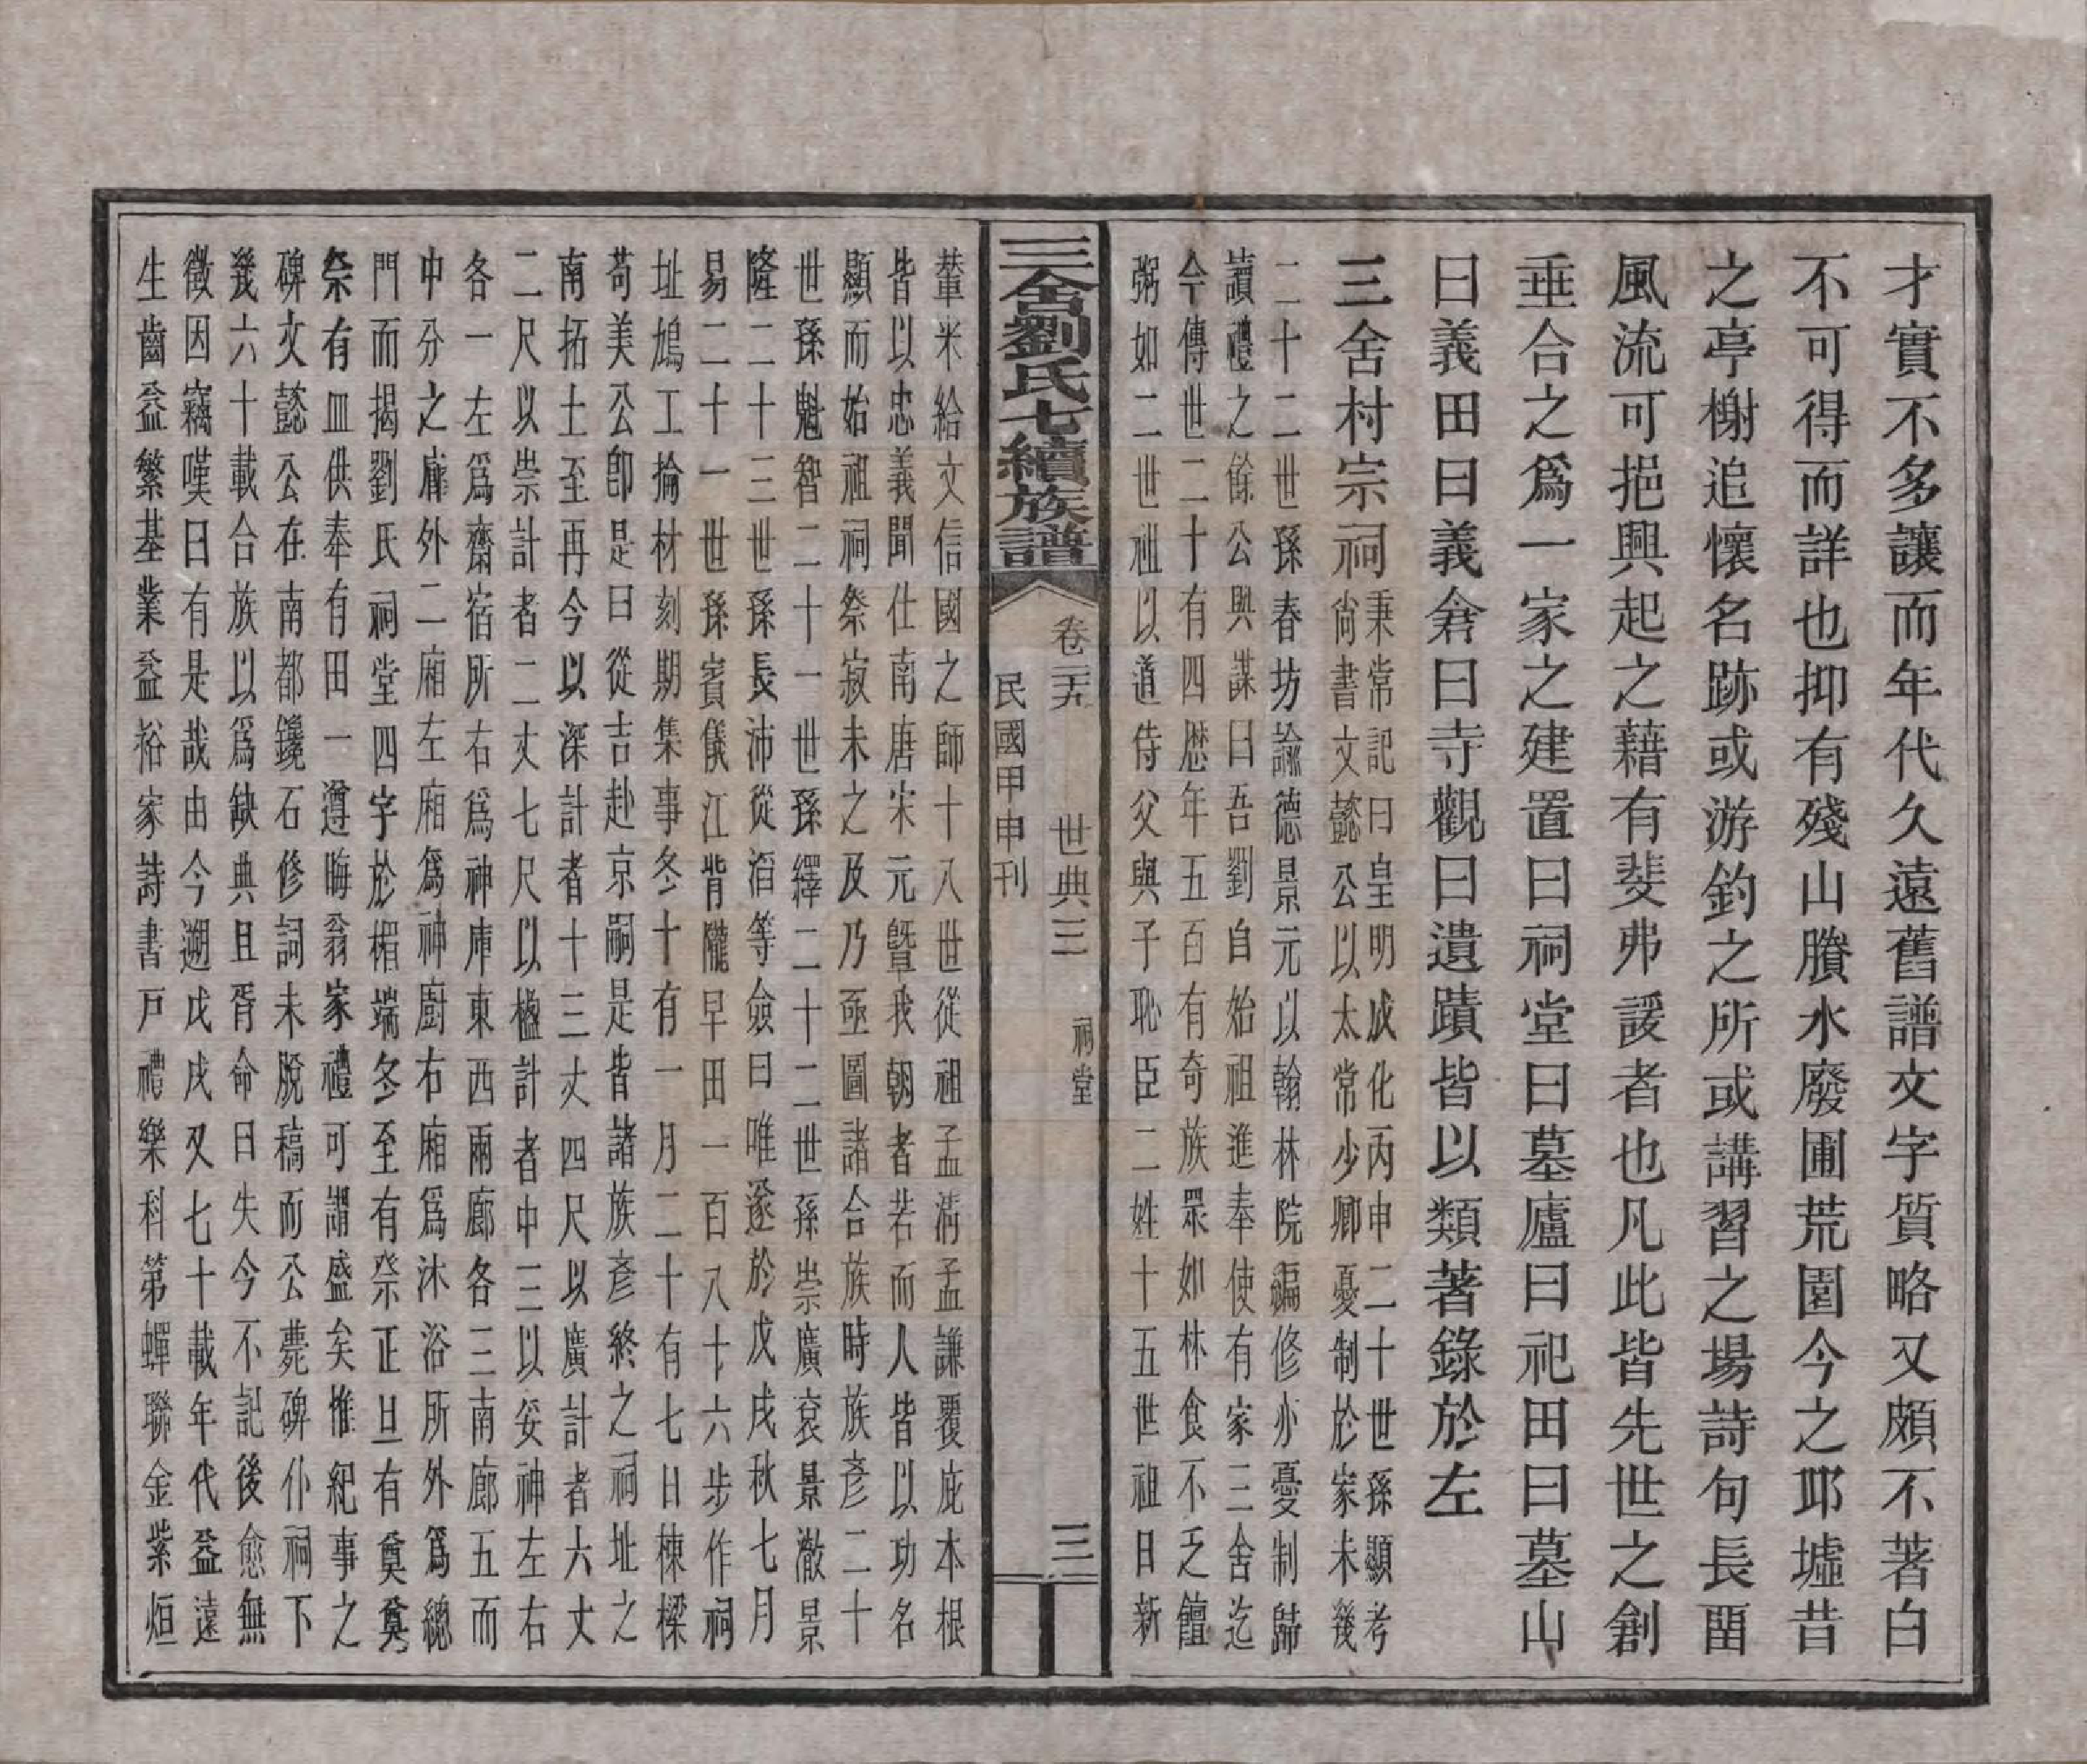 才實不多讓而年代久遠舊譜文字質略又頗不著白
不可得而詳也抑有殘山賸水廢圃荒園今之邱墟昔
之亭榭追懷名跡或游釣之所或講習之場詩句長畱
風流可挹興起之藉有斐弗諼者也凡此皆先世之創
垂合之爲一家之建置曰祠堂曰墓廬曰祀田曰墓山
曰義田曰義倉曰寺觀曰遺蹟皆以類著錄於左
三舍村宗祠
秉常記曰皇明成化丙申二十世孫顯考
尙書文懿公以太常少卿憂制於家未幾
二十二世孫春坊諭德景元以翰林院編修亦憂制歸
讀禮之餘公與謀曰吾劉自始祖進奉使有家三舍迄
今傳世二十有四歴年五百有奇族眾如林食不乏饘
粥如二世祖以道侍父與子恥臣二姓十五世祖日新
輦米給文信國之師十八世從祖孟淸孟謙覆庇本根
皆以忠義聞仕南唐宋元曁我朝者若而人皆以功名
顯而始祖祠祭寂未之及乃亟圖諸合族時族彥二十
世孫魁智二十一世孫繹二十二世孫崇廣袞景澈景
隆二十三世孫長沛從滔等僉曰唯遂於戊戌秋七月
易二十一世孫賓儀江背隴早田一百八十六步作祠
址鳩工掄材刻期集事冬十有一月二十有七日棟樑
苟美公卽是日從吉赴京嗣是皆諸族彥終之祠址之
南拓土至再今以深計者十三丈四尺以廣計者六丈
二尺以崇計者二丈七尺以楹計者中三以妥神左右
各一左爲齋宿所右爲神庫東西兩廊各三南廊五而
中分之廊外二廂左廂爲神廚右廂爲沐浴所外爲總
門而揭劉氏祠堂四字於楣端冬至有祭正旦有奠奠
祭有血供奉有田一遵晦翁家禮可謂盛矣惟紀事之
碑文懿公在南都鑱石修詞未脫稿而公薨碑仆祠下
幾六十載合族以爲缺典且胥命曰失今不記後愈無
徵因竊嘆曰有是哉由今遡戊戌又七十載年代益遠
生齒益繁基業益裕家詩書戸禮樂科第蟬聯金紫烜
三舍劉氏七續族譜
卷二五 世典三 祠堂 三
民國甲申刊